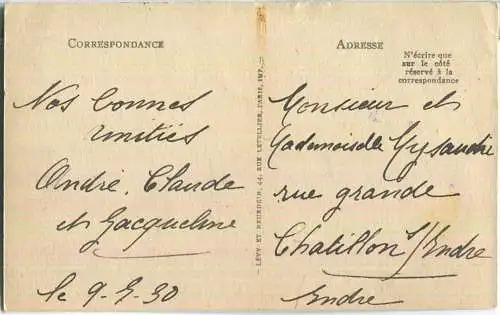 CORRESPONDANCE
Nos bonnes
amitiés
André, Claude
et Jacqueline
le 9-5-30
LÉVY ET NEURDEIN, 44, RUE LETELLIER, PARIS, IMP.
ADRESSE
N'écrire que
sur le côté
réservé à la
correspondance
Monsieur et
Mademoiselle
rue grande
Chatillon s/Indre
Indre